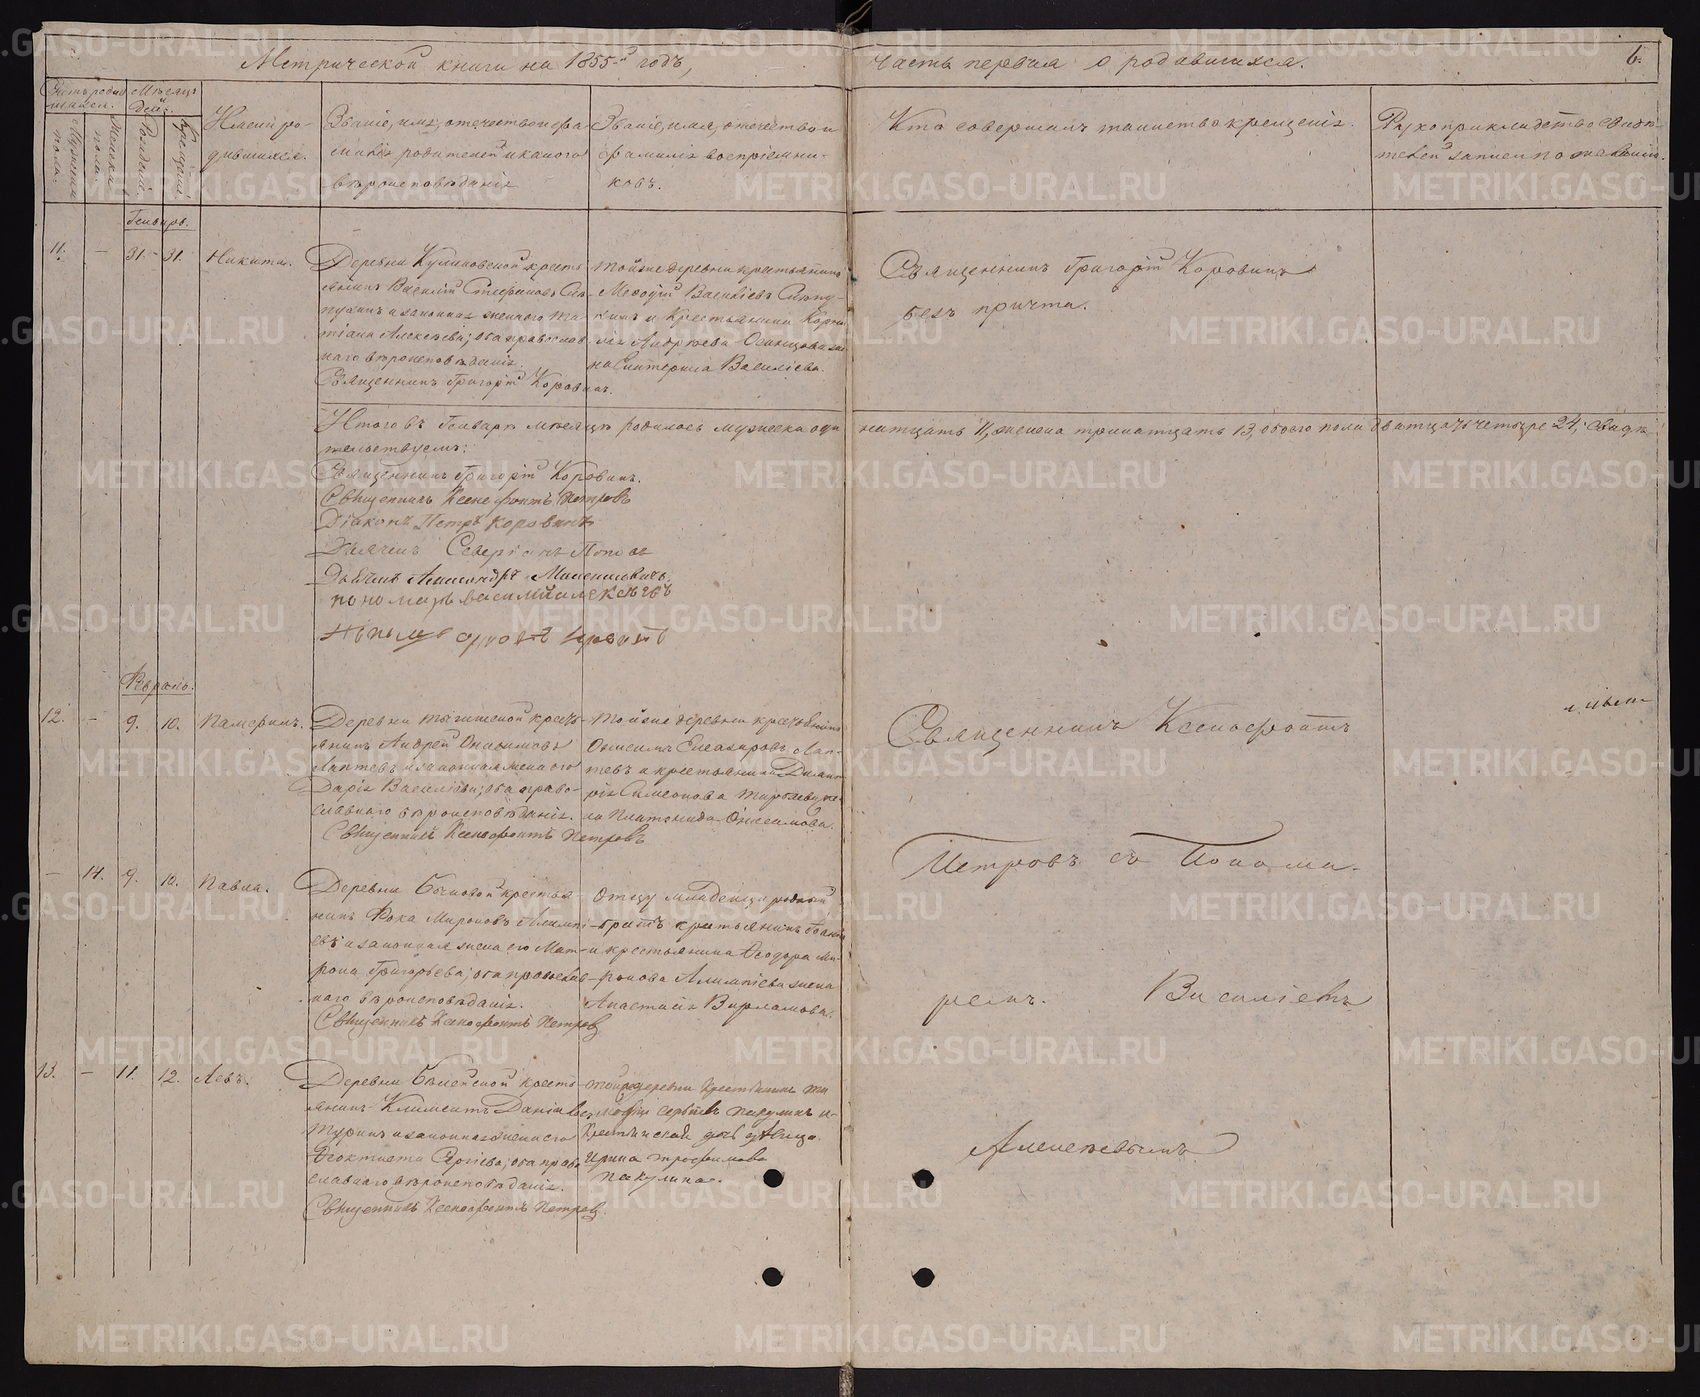 Метрической книги на 1855й годъ,
часть первая о родившихся.
6.
Счетъ родившихся.
Мѣсяцъ и день.
Мужеска пола.
Женска пола.
Рожденія.
Крещенія.
Имена ро-
дившихся.
Званіе, имя, отечество и фа-
милія родителей и какого
вѣроисповѣданія
Званіе, имя, отечество и
фамилія воспріемни-
ковъ.
Кто совершалъ таинство крещенія.
Рукоприкладство свидѣ-
телей записи по желанію.
Генварь.
11. - 31. 31. Никита.
Деревни Куликовской кресть
янинъ Василій Стефановъ
и законная жена его Та
тіана Алексѣева; оба православ
наго вѣроисповѣданія.
Священникъ Григорій Коровинъ.
тойже деревни крестьянинъ
Меѳодій Василіевъ
и крестьянина
Андреева жена
Екатерина Василіева.
Священникъ Григорій Коровинъ
безъ причта.
Итого въ Генварѣ мѣсяцѣ родилось мужеска оди
натцать 11, женска тринатцать 13, обоего пола дватцать четыре 24; Свидѣ
тельствуемъ:
Священникъ Григорій Коровинъ.
Священникъ Ксенофонтъ Петровъ
Діаконъ Петръ Коровинъ
Дьячекъ Северіанъ Поповъ
Дьячекъ Александръ
пономарь василій алексѣевъ
Февраль.
12. - 9. 10. Памфилъ.
Деревни крестъ-
янинъ Андрей Онисимовъ
Лаптевъ и законная жена его
Дарія Василіева; оба право-
славнаго вѣроисповѣданія.
Священникъ Ксенофонтъ Петровъ
тойже деревни крестьянинъ
Онисимъ Елеазаровъ Лап-
тевъ и крестьянина
Симеонова
Платонида Онисимова.
Священникъ Ксенофонтъ
Петровъ съ Понома-
ремъ. Василіемъ
Алексѣевымъ
- 14. 9. 10. Павла.
Деревни Быковой крестья-
нинъ Фока Мироновъ Алимпі-
евъ и законная жена его Мат-
рона Григорьева; оба православ-
наго вѣроисповѣданія.
Священникъ Ксенофонтъ Петровъ
Отцу младенца родный
братъ крестьянинъ
и крестьянина Ѳеодора Ми-
ронова Алимпіева жена
Анастасія Варламова.
13. - 11. 12. Левъ.
Деревни крестъ-
янинъ Климентъ Даніиловъ
и законная жена его
Ѳеоктиста Сергіева; оба право
славнаго вѣроисповѣданія.
Священникъ Ксенофонтъ Петровъ.
тойже деревни крестьянинъ
пакулинъ и
крестьянская дочь дѣвица
Ирина трофимова
пакулина.
METRIKI.GASO-URAL.RU